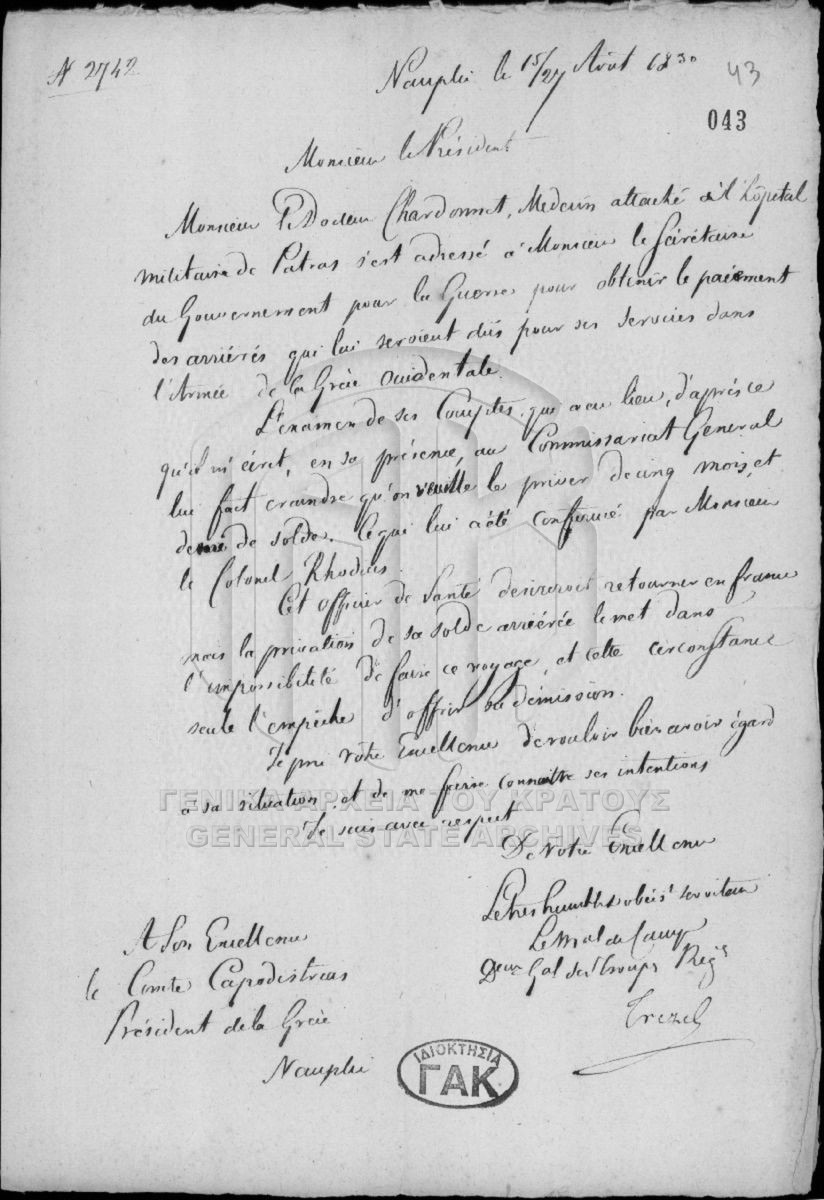 N 2742
Nauplie le 15/27 Août 1830
43
043
Monsieur le Président
Monsieur le Docteur Chardonnet, Medecin attaché à l'hôpital
militaire de Patras s'est adressé à Monsieur le Sécrétaire
du Gouvernement pour la Guerre pour obtenir le paiement
des arriérés qui lui seroient dûs pour ses services dans
l'Armée de la Grèce occidentale.
L'examen de ses Comptes, qui a eu lieu, d'après ce
qu'il m'écrit, en sa présence, au Commissariat General
lui fait craindre qu'on veuille le priver de cinq mois et
de solde. Ce qui lui a été confirmé par Monsieur
le Colonel Rhodius.
Cet officier de Santé desireroit retourner en france
mais la privation de sa solde arriérée le met dans
l'impossibilité de faire ce voyage, et cette circonstance
seule l'empêche d'offrir sa démission.
Je prie votre Excellence de vouloir bien avoir égard
à sa situation et de me faire connaître ses intentions
Je suis avec respect
De votre Excellence
Le tres humble & obeist serviteur
Le Mal de Camp
Deur Gal des troupes Regs
Trezel
A Son Excellence
le Comte Capodistrias
Président de la Grèce
Nauplie
ΓΕΝΙΚΑ ΑΡΧΕΙΑ ΤΟΥ ΚΡΑΤΟΥΣ
GENERAL STATE ARCHIVES
ΙΔΙΟΚΤΗΣΙΑ
ΓΑΚ